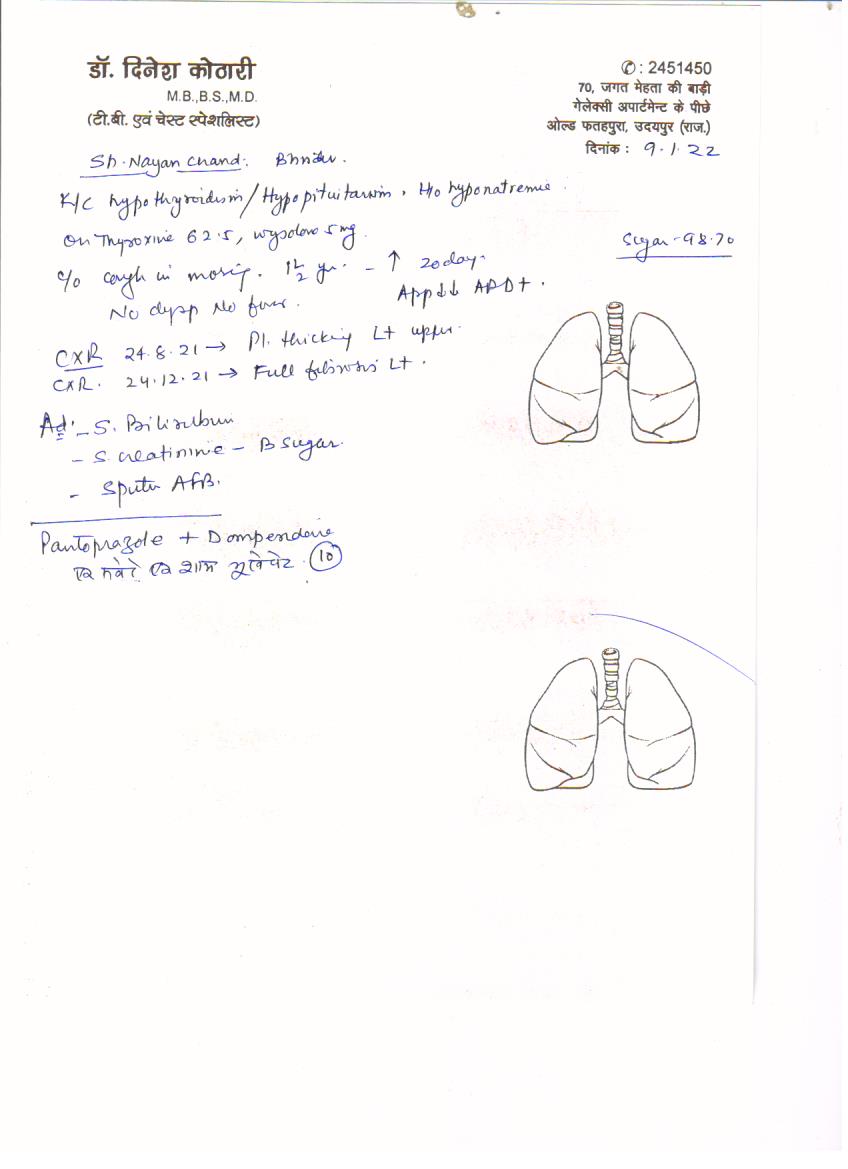 डॉ. दिनेश कोठारी
M.B.,B.S.,M.D.
(टी.बी. एवं चेस्ट स्पेशलिस्ट)
✆ : 2451450
70, जगत मेहता की बाड़ी
गेलेक्सी अपार्टमेन्ट के पीछे
ओल्ड फतहपुरा, उदयपुर (राज.)
दिनांक : 9.1.22
Sh. Nayan Chand.
K/C hypothyroidism / Hypopituitarism, H/o hyponatremia.
On Thyroxine 62.5, wysolone 5 mg.
Sugar - 98.70
c/o cough in morning. 1½ yr. - ↑ 20 day.
No dysp No fever.
App ↓↓ APD+.
CXR 24.8.21 → Pl. thicking Lt upper.
CXR. 24.12.21 → Full fibrosis Lt.
Ad: - S. Bilirubin
- S. creatinine - B sugar.
- Sputum AFB.
Pantoprazole + Domperidone
एक सवेरे एक शाम भूखे पेट. (10)